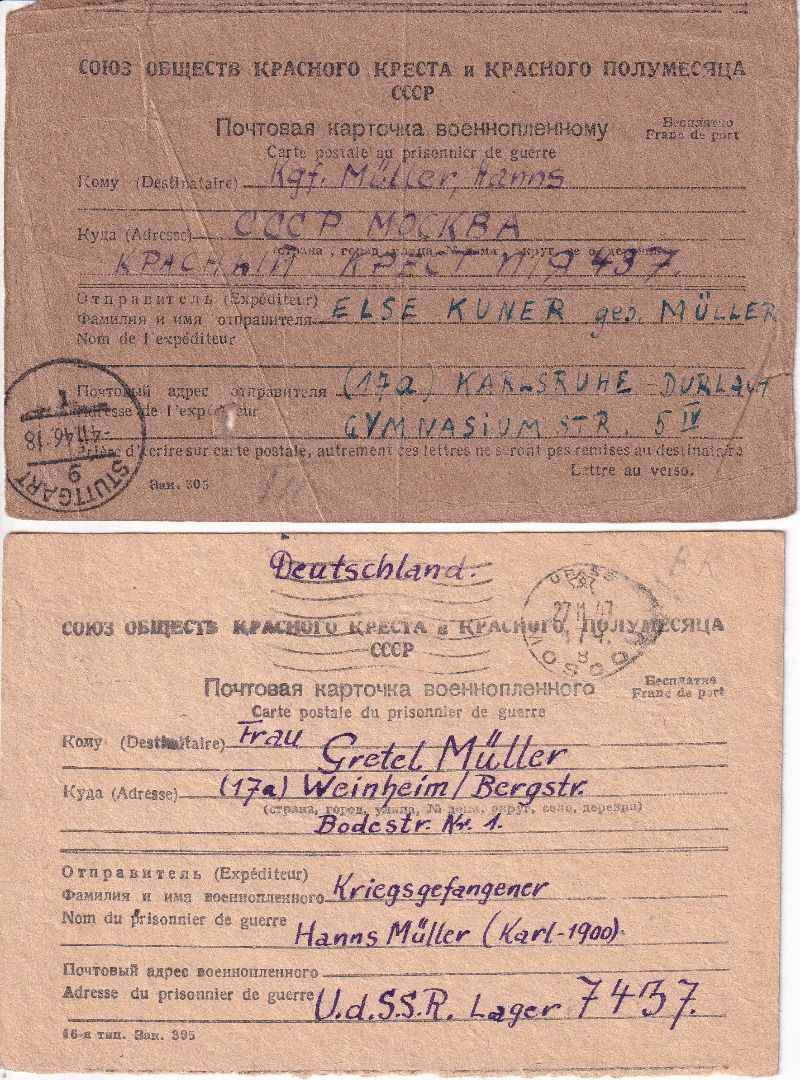 СОЮЗ ОБЩЕСТВ КРАСНОГО КРЕСТА и КРАСНОГО ПОЛУМЕСЯЦА
СССР
Почтовая карточка военнопленному
Бесплатно
Carte postale au prisonnier de guerre
Franc de port
Кому (Destinataire) Kgf. Müller, Hanns
Куда (Adresse) СССР МОСКВА
КРАСНЫЙ КРЕСТ 437.
Отправитель (Expéditeur)
Фамилия и имя отправителя ELSE KUNER geb. MÜLLER
Nom de l'expéditeur
Почтовый адрес отправителя (17a) KARLSRUHE-DURLACH
Adresse de l'expéditeur GYMNASIUMSTR. 5 IV
Prière d'écrire sur carte postale, autrement ces lettres ne seront pas remises au destinataire
Lettre au verso.
Зак. 305
STUTTGART 9
46.18
Deutschland.
СОЮЗ ОБЩЕСТВ КРАСНОГО КРЕСТА и КРАСНОГО ПОЛУМЕСЯЦА
СССР
Почтовая карточка военнопленного
Бесплатно
Carte postale du prisonnier de guerre
Franc de port
Кому (Destinataire) Frau Gretel Müller
Куда (Adresse) (17a) Weinheim/Bergstr.
(страна, город, улица, № дома, округ, село, деревня)
Bodestr. Nr. 1.
Отправитель (Expéditeur)
Фамилия и имя военнопленного Kriegsgefangener
Nom du prisonnier de guerre Hanns Müller (Karl-1900).
Почтовый адрес военнопленного
Adresse du prisonnier de guerre U.d.S.S.R. Lager 7437.
16-я тип. Зак. 395